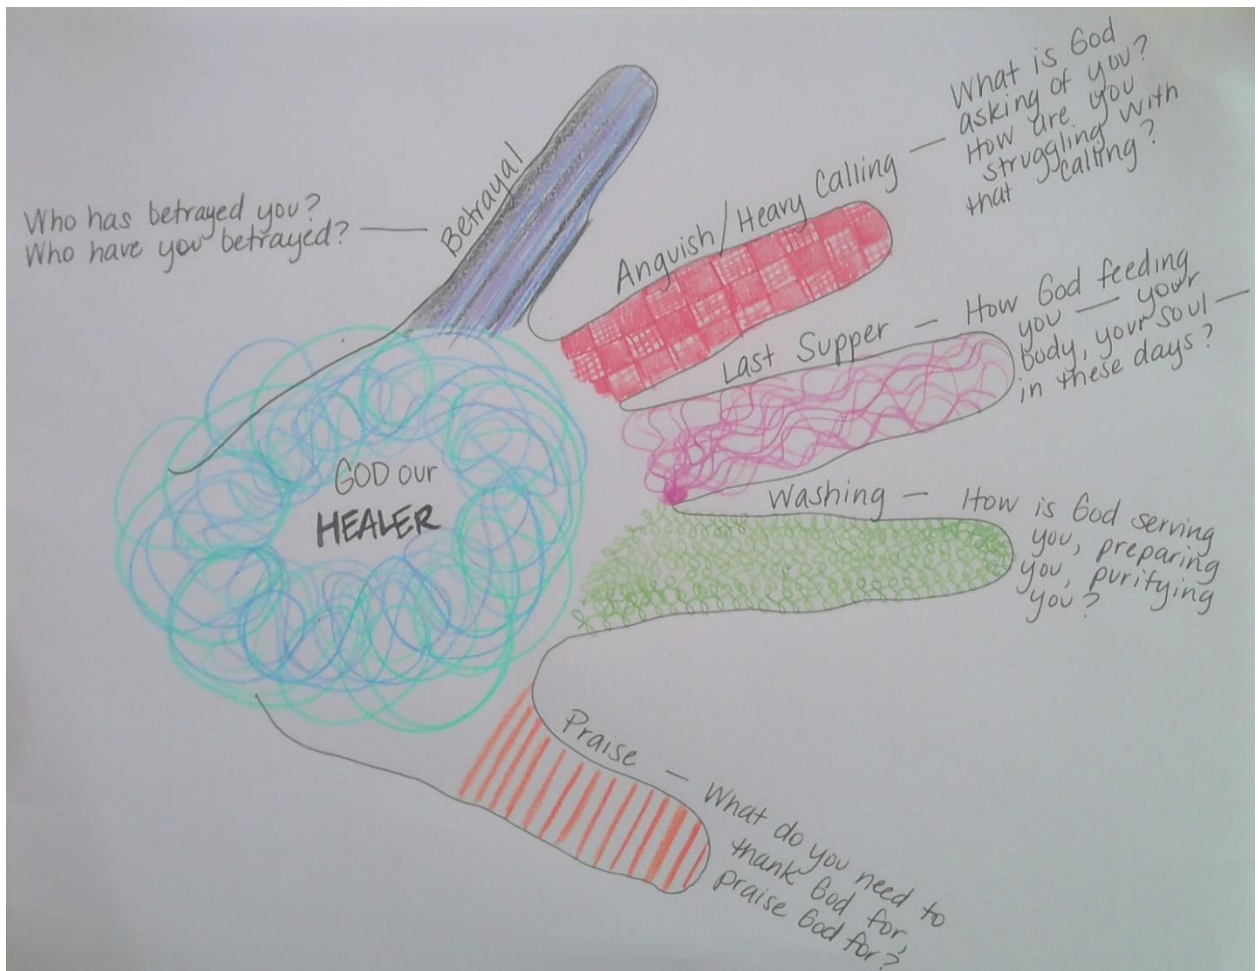 Who has betrayed you?
Who have you betrayed? —
Betrayal
Anguish/Heavy Calling —
What is God
asking of you?
How are you
struggling with
that calling?
Last Supper — How God feeding
you — your
body, your soul —
in these days?
Washing — How is God serving
you, preparing
you, purifying
you?
GOD our
HEALER
Praise — What do you need to
thank God for,
praise God for?